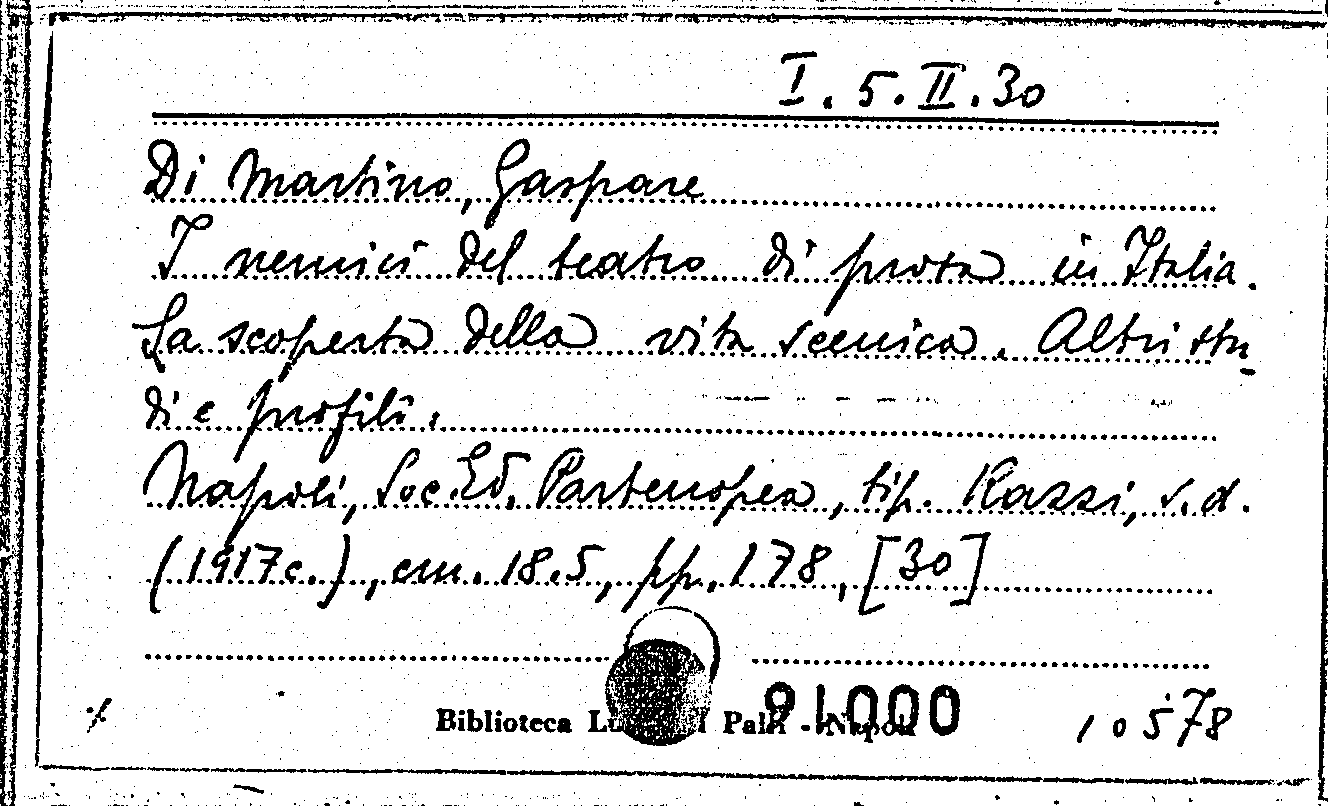 I. 5. II. 30
Di Martino, Gaspare
I nemici del teatro di prosa in Italia.
La scoperta della vita scenica. Altri stu-
di e profili.
Napoli, Soc. Ed. Partenopea, tip. Razzi, s.d.
(1917c.), cm. 18.5, pp. 178, [30]
91000
Biblioteca - Napoli
10578